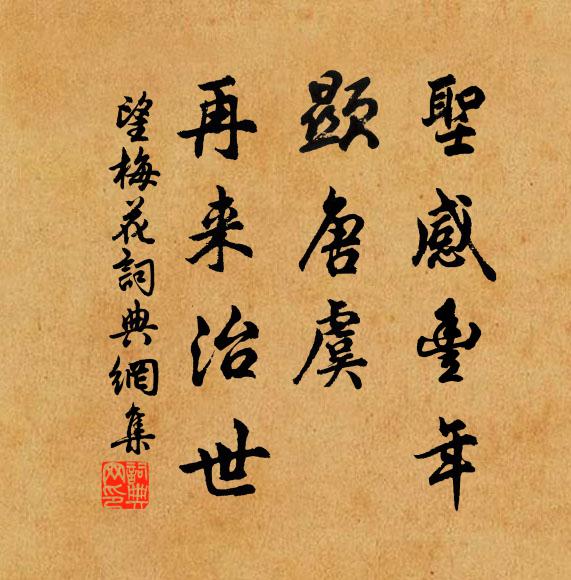 聖感豐年
顯唐虞
再来治世
望梅花詞典網集
詞典